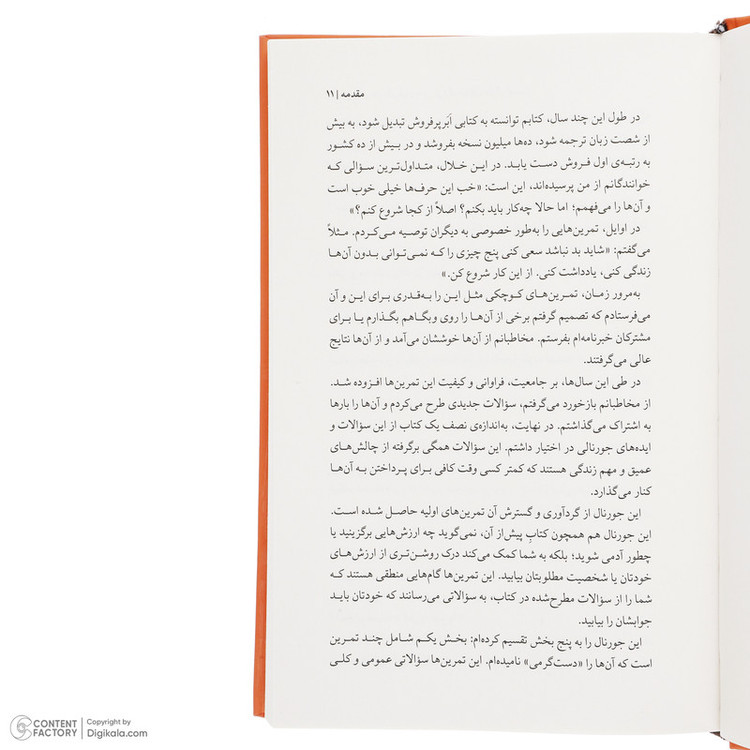 مقدمه | ۱۱
در طول این چند سال، کتابم توانسته به کتابی اَبَرپرفروش تبدیل شود، به بیش
از شصت زبان ترجمه شود، ده‌ها میلیون نسخه بفروشد و در بیش از ده کشور
به رتبه‌ی اول فروش دست یابد. در این خلال، متداول‌ترین سؤالی که
خوانندگانم از من پرسیده‌اند، این است: «خب این حرف‌ها خیلی خوب است
و آن‌ها را می‌فهمم؛ اما حالا چه‌کار باید بکنم؟ اصلاً از کجا شروع کنم؟»
در اوایل، تمرین‌هایی را به‌طور خصوصی به دیگران توصیه می‌کردم. مثلاً
می‌گفتم: «شاید بد نباشد سعی کنی پنج چیزی را که نمی‌توانی بدون آن‌ها
زندگی کنی، یادداشت کنی. از این کار شروع کن.»
به‌مرور زمان، تمرین‌های کوچکی مثل این را به‌قدری برای این و آن
می‌فرستادم که تصمیم گرفتم برخی از آن‌ها را روی وبگاهم بگذارم یا برای
مشترکان خبرنامه‌ام بفرستم. مخاطبانم از آن‌ها خوششان می‌آمد و از آن‌ها نتایج
عالی می‌گرفتند.
در طی این سال‌ها، بر جامعیت، فراوانی و کیفیت این تمرین‌ها افزوده شد.
از مخاطبانم بازخورد می‌گرفتم، سؤالات جدیدی طرح می‌کردم و آن‌ها را بارها
به اشتراک می‌گذاشتم. در نهایت، به‌اندازه‌ی نصف یک کتاب از این سؤالات و
ایده‌های جورنالی در اختیار داشتم. این سؤالات همگی برگرفته از چالش‌های
عمیق و مهم زندگی هستند که کمتر کسی وقت کافی برای پرداختن به آن‌ها
کنار می‌گذارد.
این جورنال از گردآوری و گسترش آن تمرین‌های اولیه حاصل شده است.
این جورنال هم همچون کتابِ پیش‌از آن، نمی‌گوید چه ارزش‌هایی برگزینید یا
چطور آدمی شوید؛ بلکه به شما کمک می‌کند درک روشن‌تری از ارزش‌های
خودتان یا شخصیت مطلوبتان بیابید. این تمرین‌ها گام‌هایی منطقی هستند که
شما را از سؤالات مطرح‌شده در کتاب، به سؤالاتی می‌رسانند که خودتان باید
جوابشان را بیابید.
این جورنال را به پنج بخش تقسیم کرده‌ام: بخش یکم شامل چند تمرین
است که آن‌ها را «دست‌گرمی» نامیده‌ام. این تمرین‌ها سؤالاتی عمومی و کلی
CONTENT FACTORY
Copyright by Digikala.com